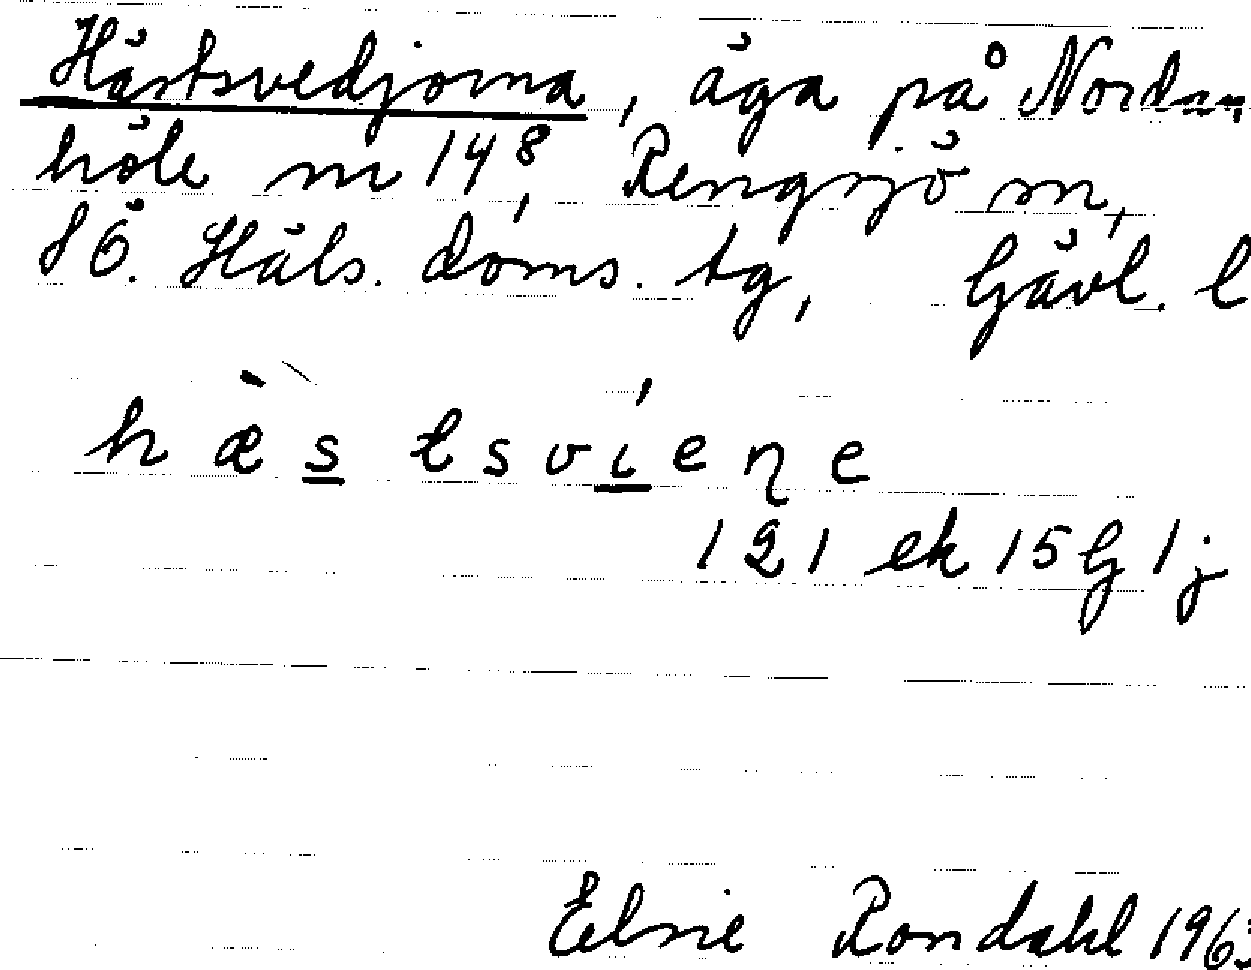 Hästsvedjorna, äga på Nordan
höle nr 14⁸, Rengsjö sn,
SÖ. Häls. doms. tg, Gävl. l
hæ̀s tsvíeṇe
121 ek 15 G 1 j
Elsie Rondahl 1963